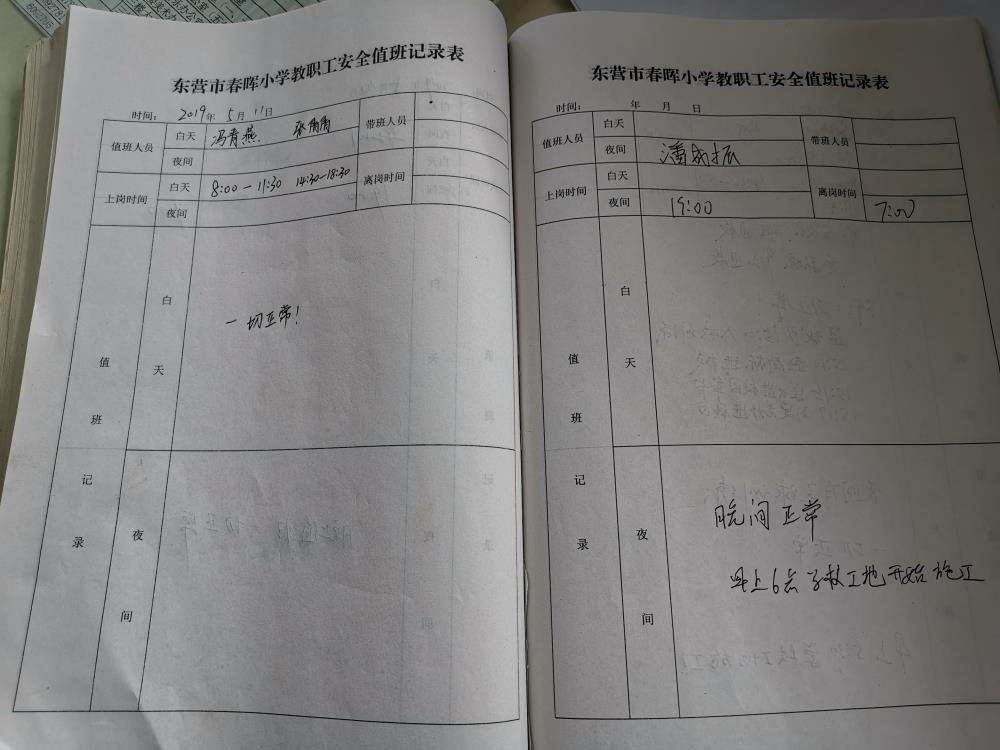 东营市春晖小学教职工安全值班记录表
时间: 2019年 5月 11日
值班人员 白天 冯青燕 张倩倩 带班人员
夜间
上岗时间 白天 8:00－11:30 14:30-18:30 离岗时间
夜间
值班记录
白天
一切正常!
夜间
东营市春晖小学教职工安全值班记录表
时间: 年 月 日
值班人员 白天 带班人员
夜间 潘成振
上岗时间 白天 离岗时间
夜间 19:00 7:00
值班记录
白天
夜间
晚间正常
早上6点学校工地开始施工